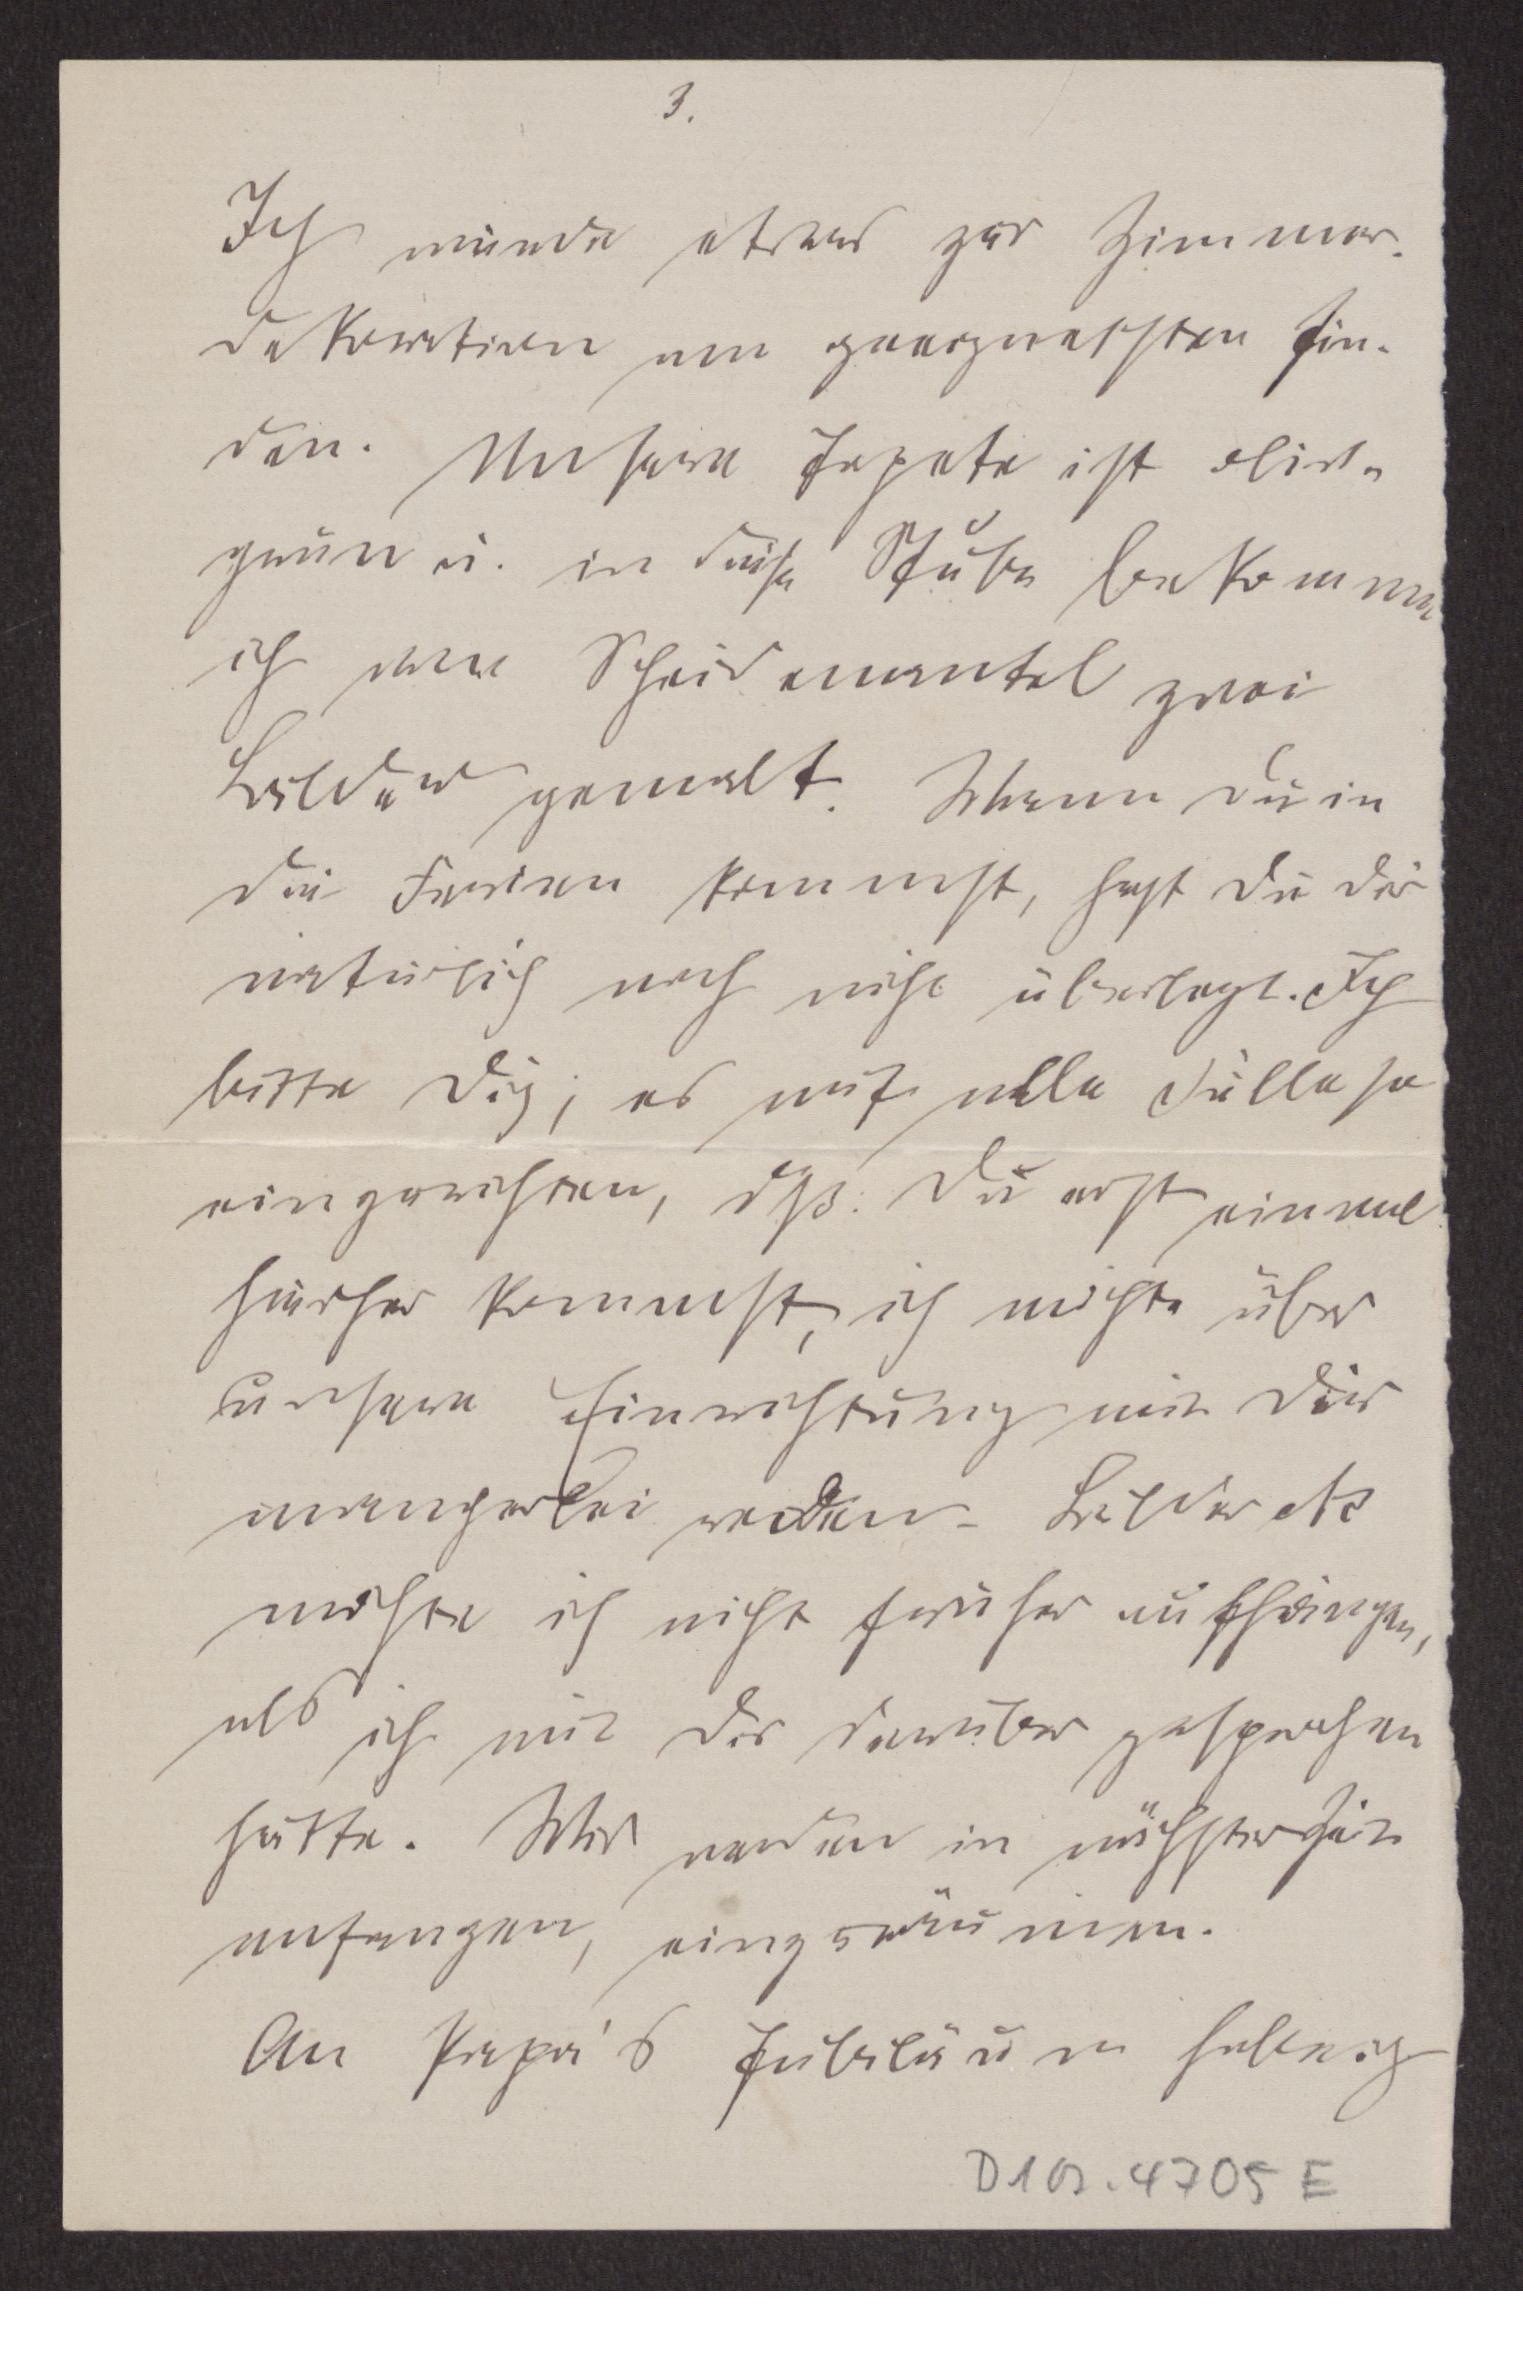 3.
Ich würde etwas zur Zimmer-
dekoration am geeignetsten fin-
den. Unsere Tapete ist oliv-
grün u. in diese Stube bekomme
ich von Scheidemantel zwei
Bilder gemalt. Wann du in
die Ferien kommst, hast du dir
natürlich noch nicht überlegt. Ich
bitte dich, es auf alle Fälle so
einzurichten, dß. du erst einmal
hierher kommst, ich möchte über
unsere Einrichtung mit dir
mancherlei reden. Bilder etc
möchte ich nicht früher aufhängen,
als ich mit dir darüber gesprochen
hätte. Wir werden in nächster Zeit
anfangen, einzuräumen.
An Papa's Jubiläum habe ich
D 102.4705 E